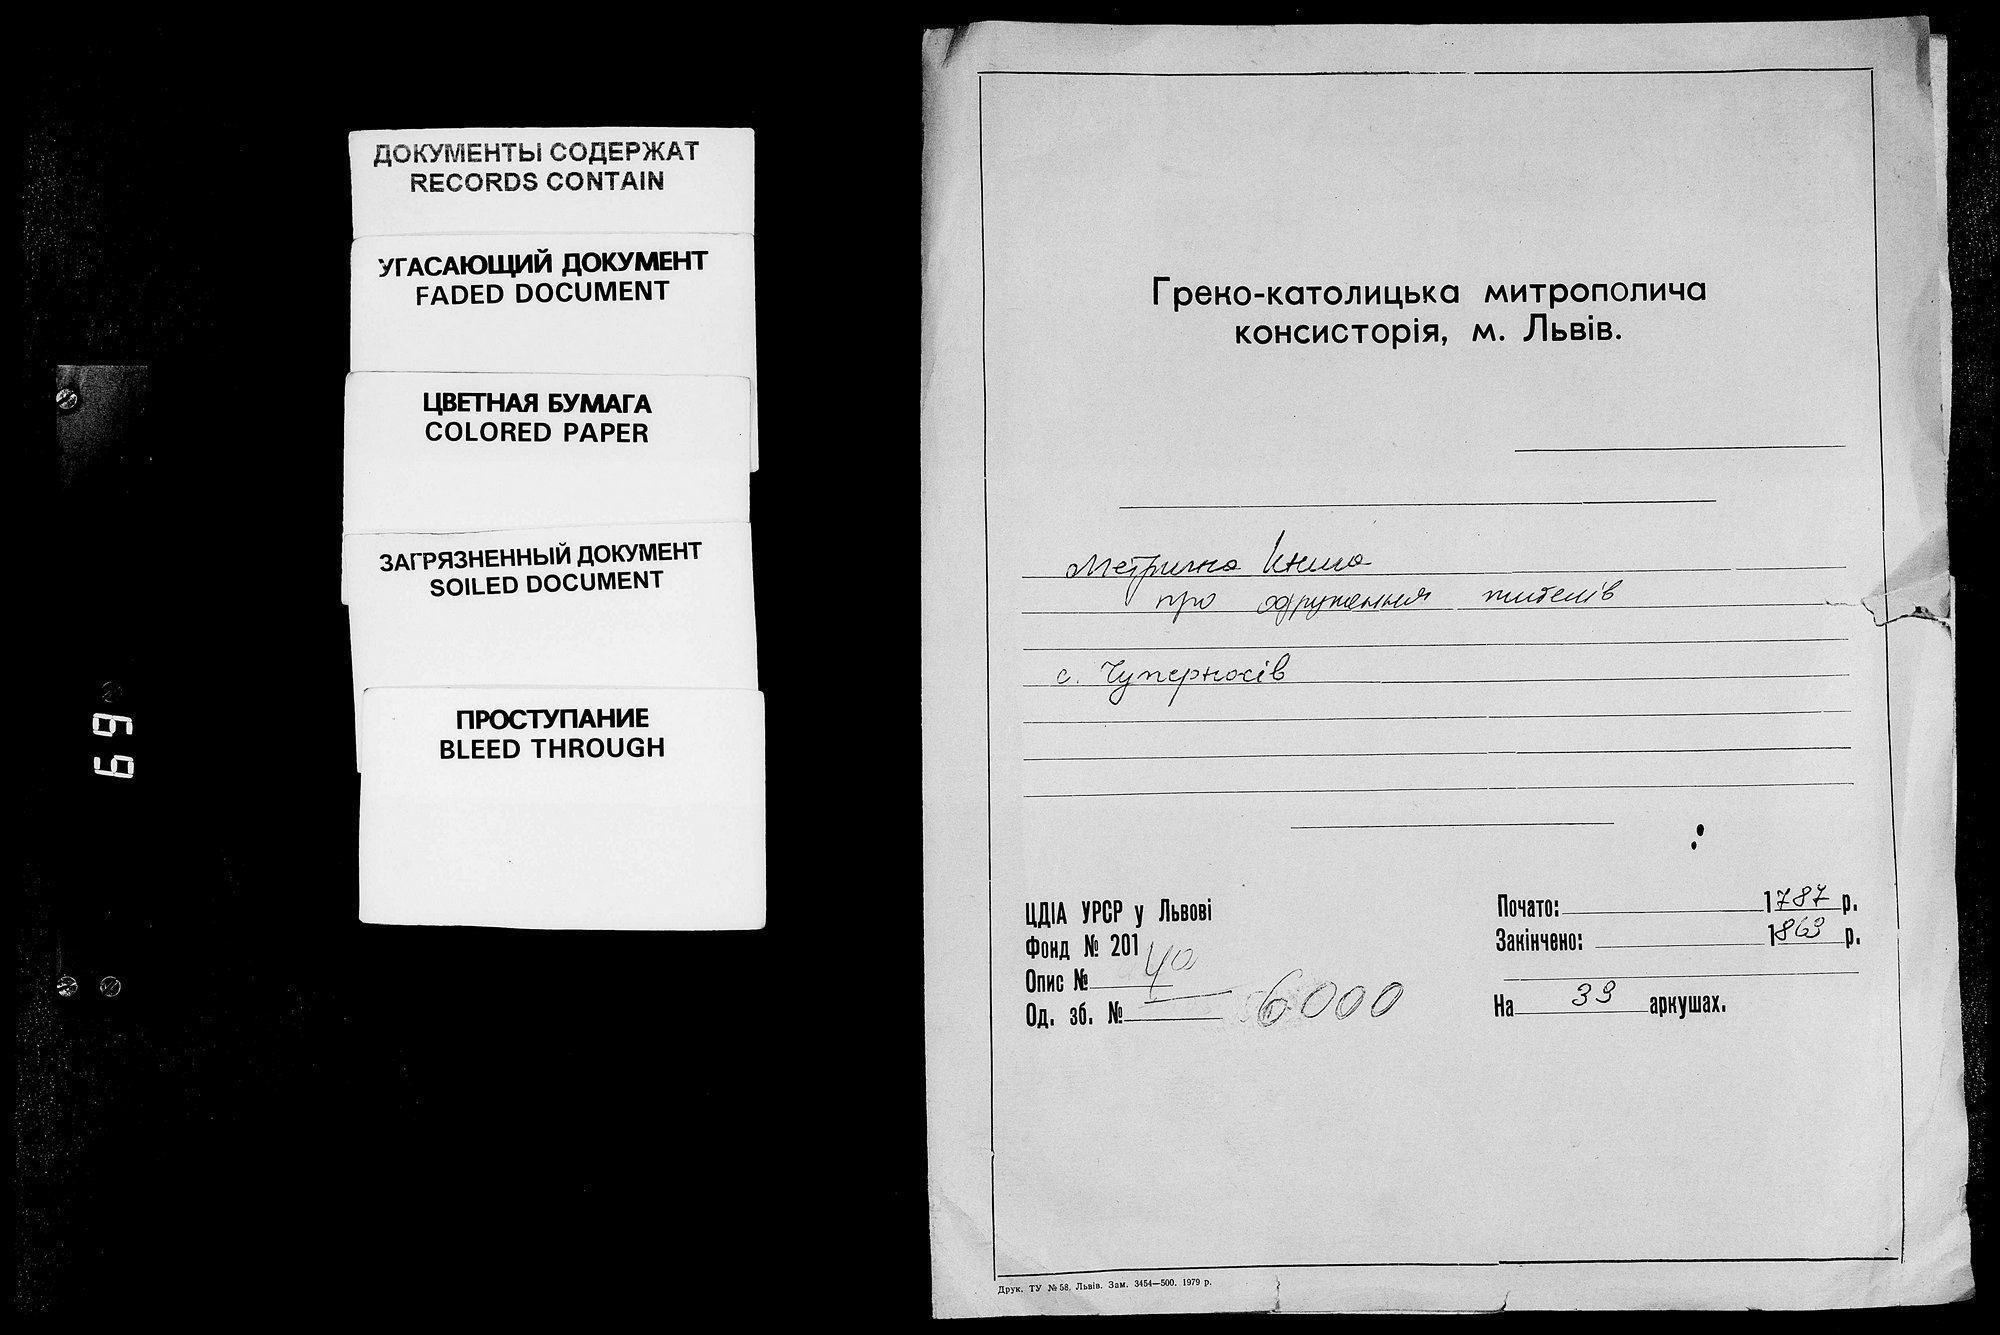 ДОКУМЕНТЫ СОДЕРЖАТ
RECORDS CONTAIN
УГАСАЮЩИЙ ДОКУМЕНТ
FADED DOCUMENT
ЦВЕТНАЯ БУМАГА
COLORED PAPER
ЗАГРЯЗНЕННЫЙ ДОКУМЕНТ
SOILED DOCUMENT
ПРОСТУПАНИЕ
BLEED THROUGH
69
Греко-католицька митрополича
консисторія, м. Львів.
Метрична книга
про одруження жителів
с. Чуперносів
ЦДІА УРСР у Львові
Фонд № 201
Опис № 4а
Од. зб. № 6000
Почато: 1787 р.
Закінчено: 1863 р.
На 39 аркушах.
Друк. ТУ № 58. Львів. Зам. 3454—500. 1979 р.